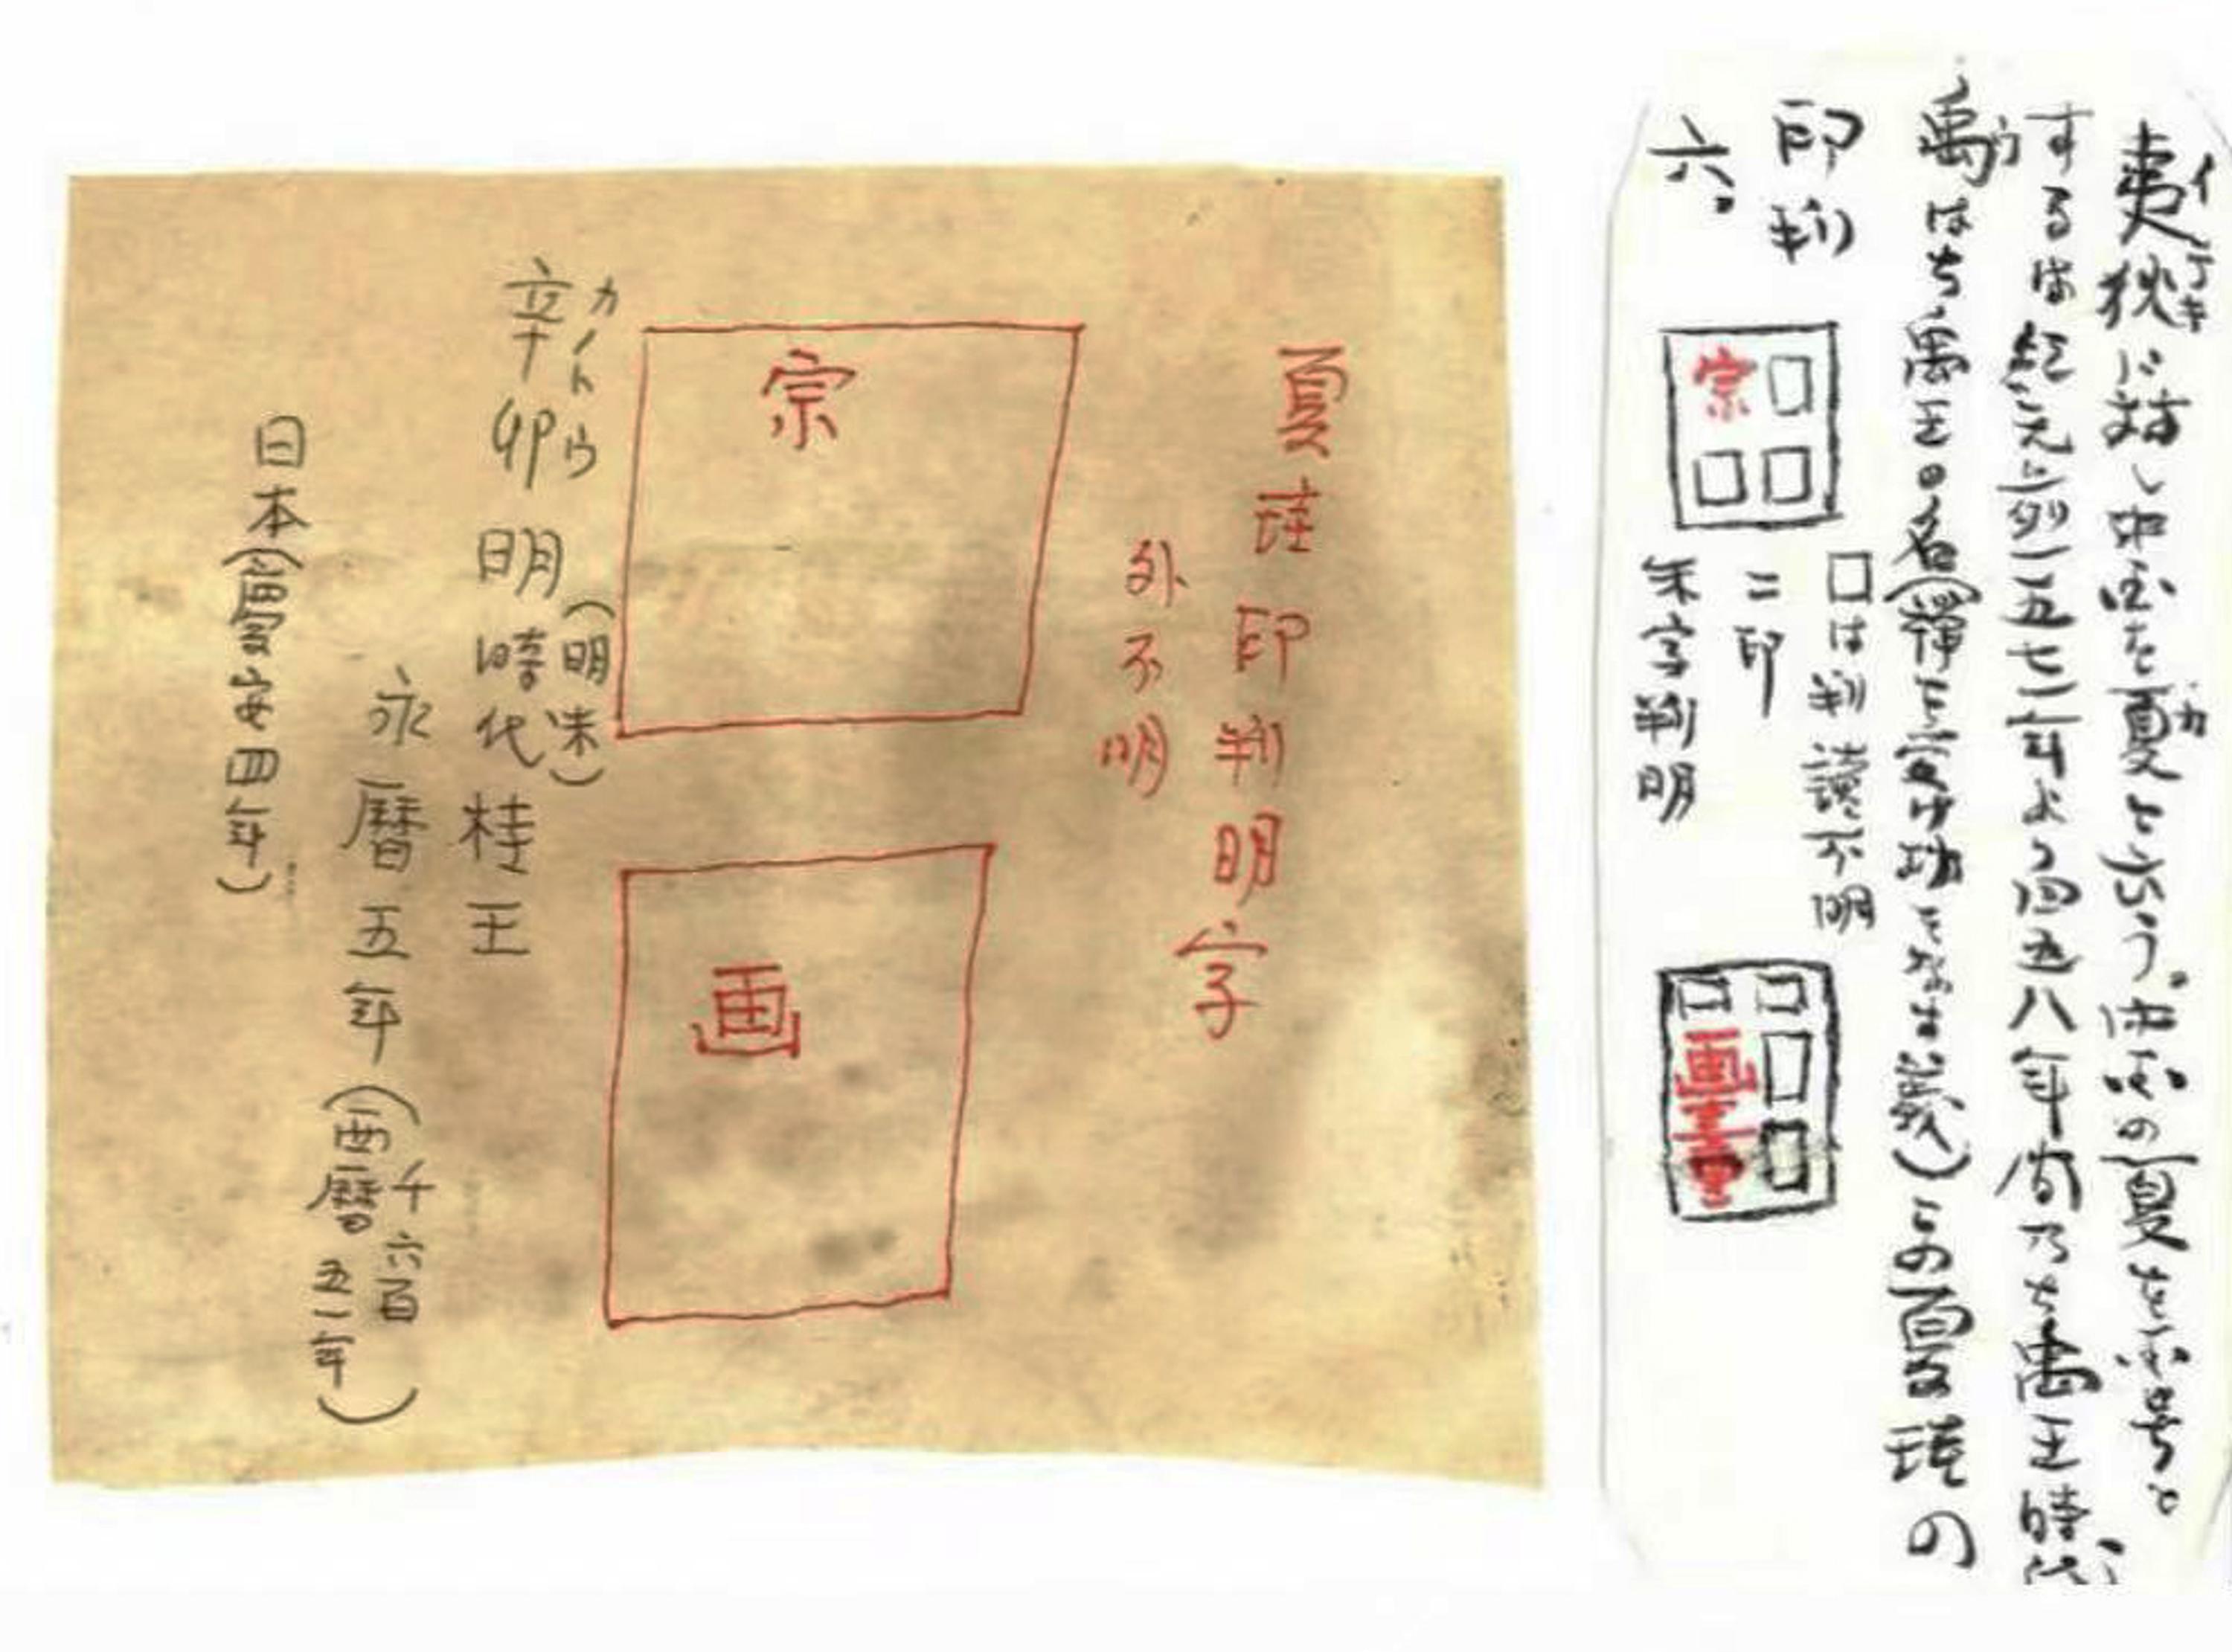 夷狄に対し中国を夏と云う。中国の夏を国号と
イテキ
カ
するは紀元前二五七一年より四五八年間乃ち禹王時代
禹は乃ち禹王の名(禅を受け功をなす義)この夏珪の
ウ
印判
六。
宗
□は判読不明
二印
朱字判明
画
夏珪印判明字
外不明
宗
画
辛卯 明時代 桂王
カノトウ
(明末)
永暦五年(西暦千六百五一年)
日本(慶安四年)